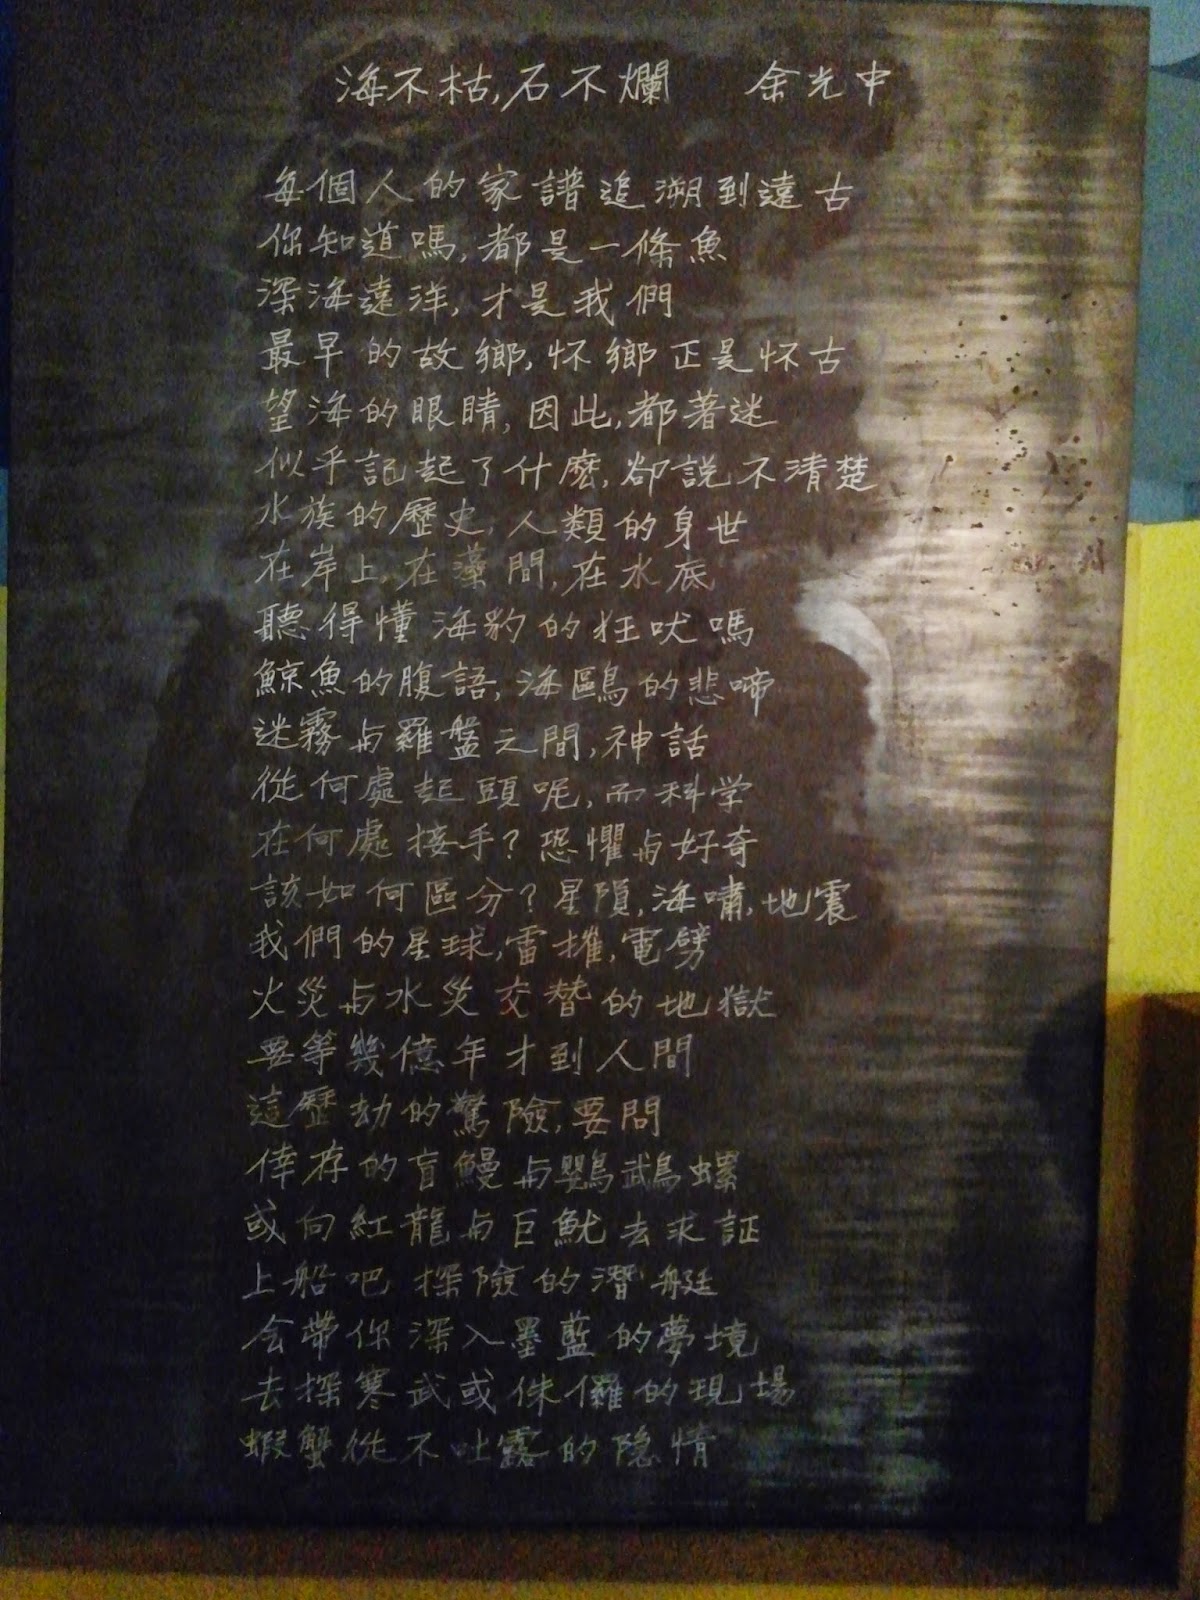 海不枯,石不爛 余光中
每個人的家譜追溯到遠古
你知道嗎,都是一條魚
深海遠洋,才是我們
最早的故鄉,怀鄉正是怀古
望海的眼睛,因此,都著迷
似乎記起了什麽,卻説不清楚
水族的歷史,人類的身世
在岸上,在藻間,在水底
聽得懂海豹的狂吠嗎
鯨魚的腹語,海鷗的悲啼
迷霧与羅盤之間,神話
從何處起頭呢,而科学
在何處接手?恐懼与好奇
該如何區分?星隕,海嘯,地震
我們的星球,雷摧,電劈
火災与水災交替的地獄
要等幾億年才到人間
這歷劫的驚險,要問
倖存的盲鰻与鸚鵡螺
或向紅龍与巨魷去求証
上船吧 探險的潛艇
会帶你深入墨藍的夢境
去探寒武或侏儸的現場
蝦蟹從不吐露的隐情